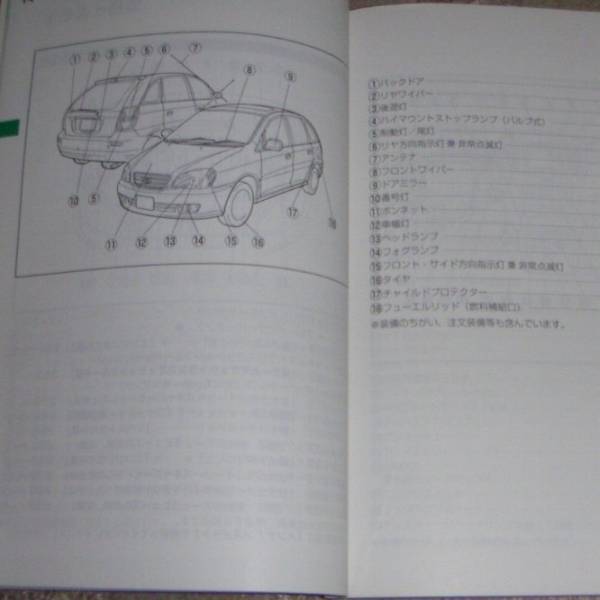 ① ② ③ ④ ⑤ ⑥ ⑦
⑧ ⑨
⑩ ⑤ ⑰ ⑱
⑪ ⑫ ⑬ ⑭ ⑮ ⑯
①バックドア
②リヤワイパー
③後退灯
④ハイマウントストップランプ（バルブ式）
⑤制動灯／尾灯
⑥リヤ方向指示灯 兼 非常点滅灯
⑦アンテナ
⑧フロントワイパー
⑨ドアミラー
⑩番号灯
⑪ボンネット
⑫車幅灯
⑬ヘッドランプ
⑭フォグランプ
⑮フロント・サイド方向指示灯 兼 非常点滅灯
⑯タイヤ
⑰チャイルドプロテクター
⑱フューエルリッド（燃料補給口）
※装備のちがい、注文装備等も含んでいます。